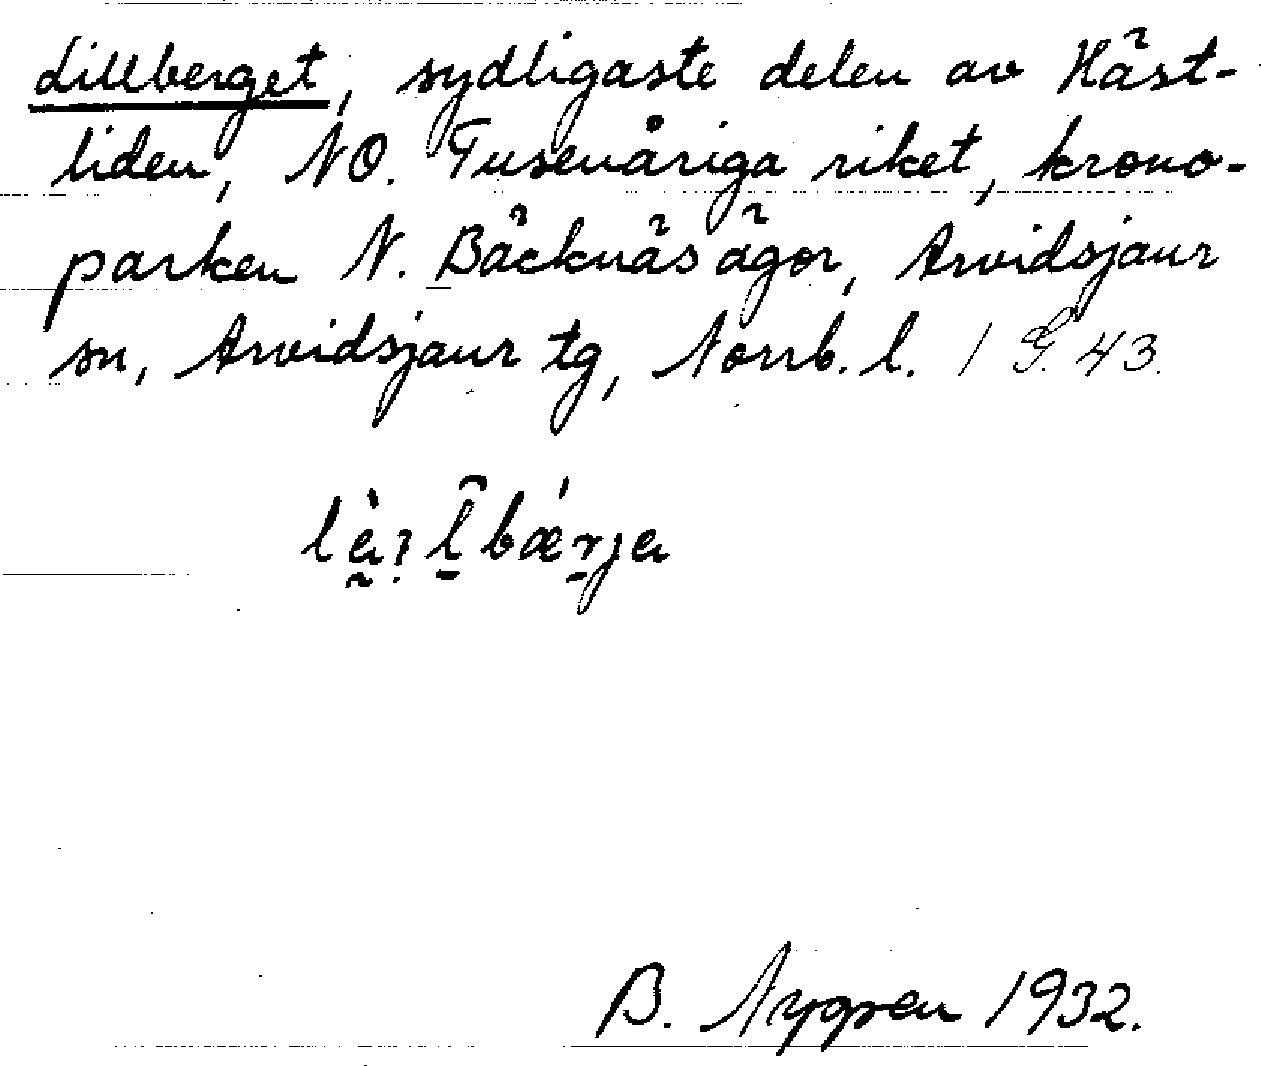 Lillberget, sydligaste delen av Häst-
liden, NO. Tusenåriga riket, krono-
parken N. Bäcknäs ägor, Arvidsjaur
sn, Arvidsjaur tg, Norrb. l. / G. 43.
B. Nygren 1932.